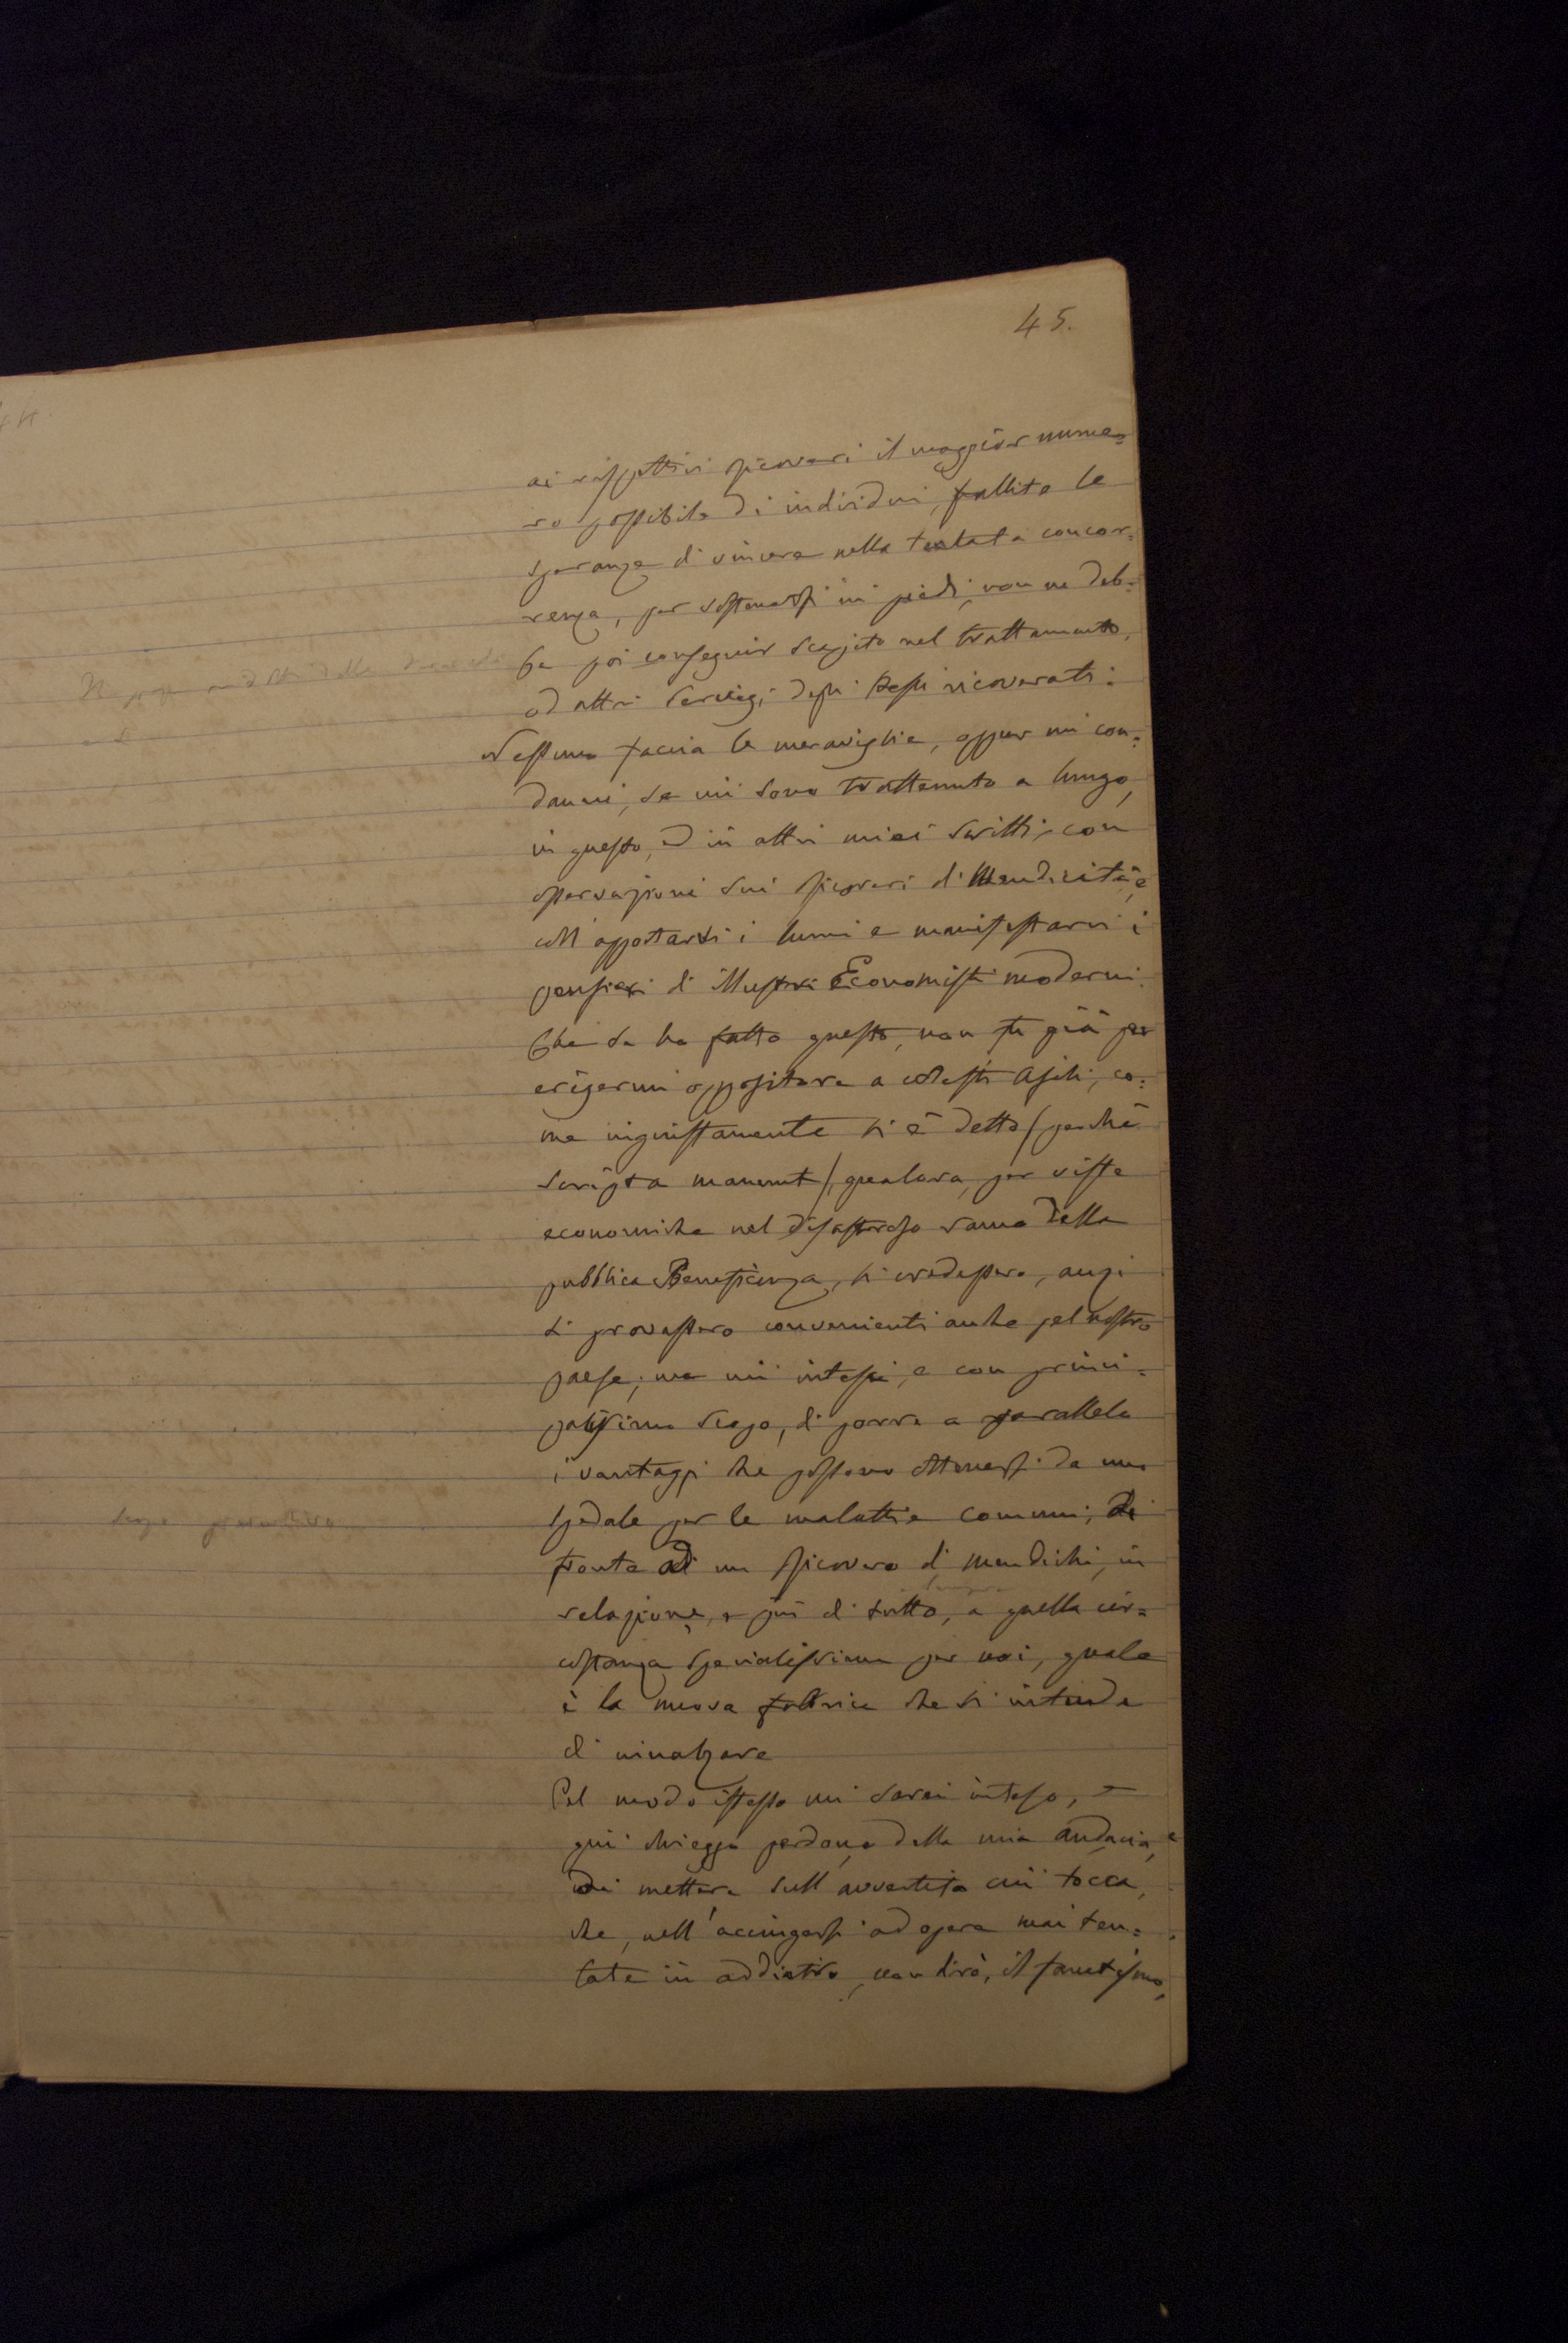 45.
ai rispettivi Ricoveri il maggior nume=
ro possibile di individui, fallite le
speranze di vincere nella tentata concor=
renza, per sostenersi in piedi, non ne deb=
ba poi conseguir scapito nel trattamento,
od altri servigi degli stessi ricoverati.
Nessuno faccia le meraviglie, oppur mi con=
danni, se mi sono trattenuto a lungo,
in questo, ed in altri miei scritti, con
osservazioni sui Ricoveri di Mendicità, e
coll'apportarvi i lumi e manifestarvi i
pensieri di illustri Economisti moderni.
Che se ho fatto questo, non fu già per
erigermi oppositore a cotesti Asili, co=
me ingiustamente si è detto (perchè
scripta manent), qualora, per viste
economiche nel disastroso ramo della
pubblica Beneficenza, si credessero, anzi
si provassero convenienti anche pel nostro
paese; ma mi intesi, e con princi=
palissimo scopo, di porre a parallelo
i vantaggi che possono ottenersi da uno
spedale per le malattie comuni, di
fronte ad un Ricovero di mendichi, in
relazione, e più di tutto, a quella cir=
costanza specialissima per noi, quale
è la nuova fabbrica che si intende
di innalzare
Pel modo istesso mi sarei inteso, e
qui chieggo perdono della mia audacia,
di mettere sull'avvertito cui tocca,
che, nell'accingersi ad opere mai ten=
tate in addietro, non dirò, il fanatismo,
senza